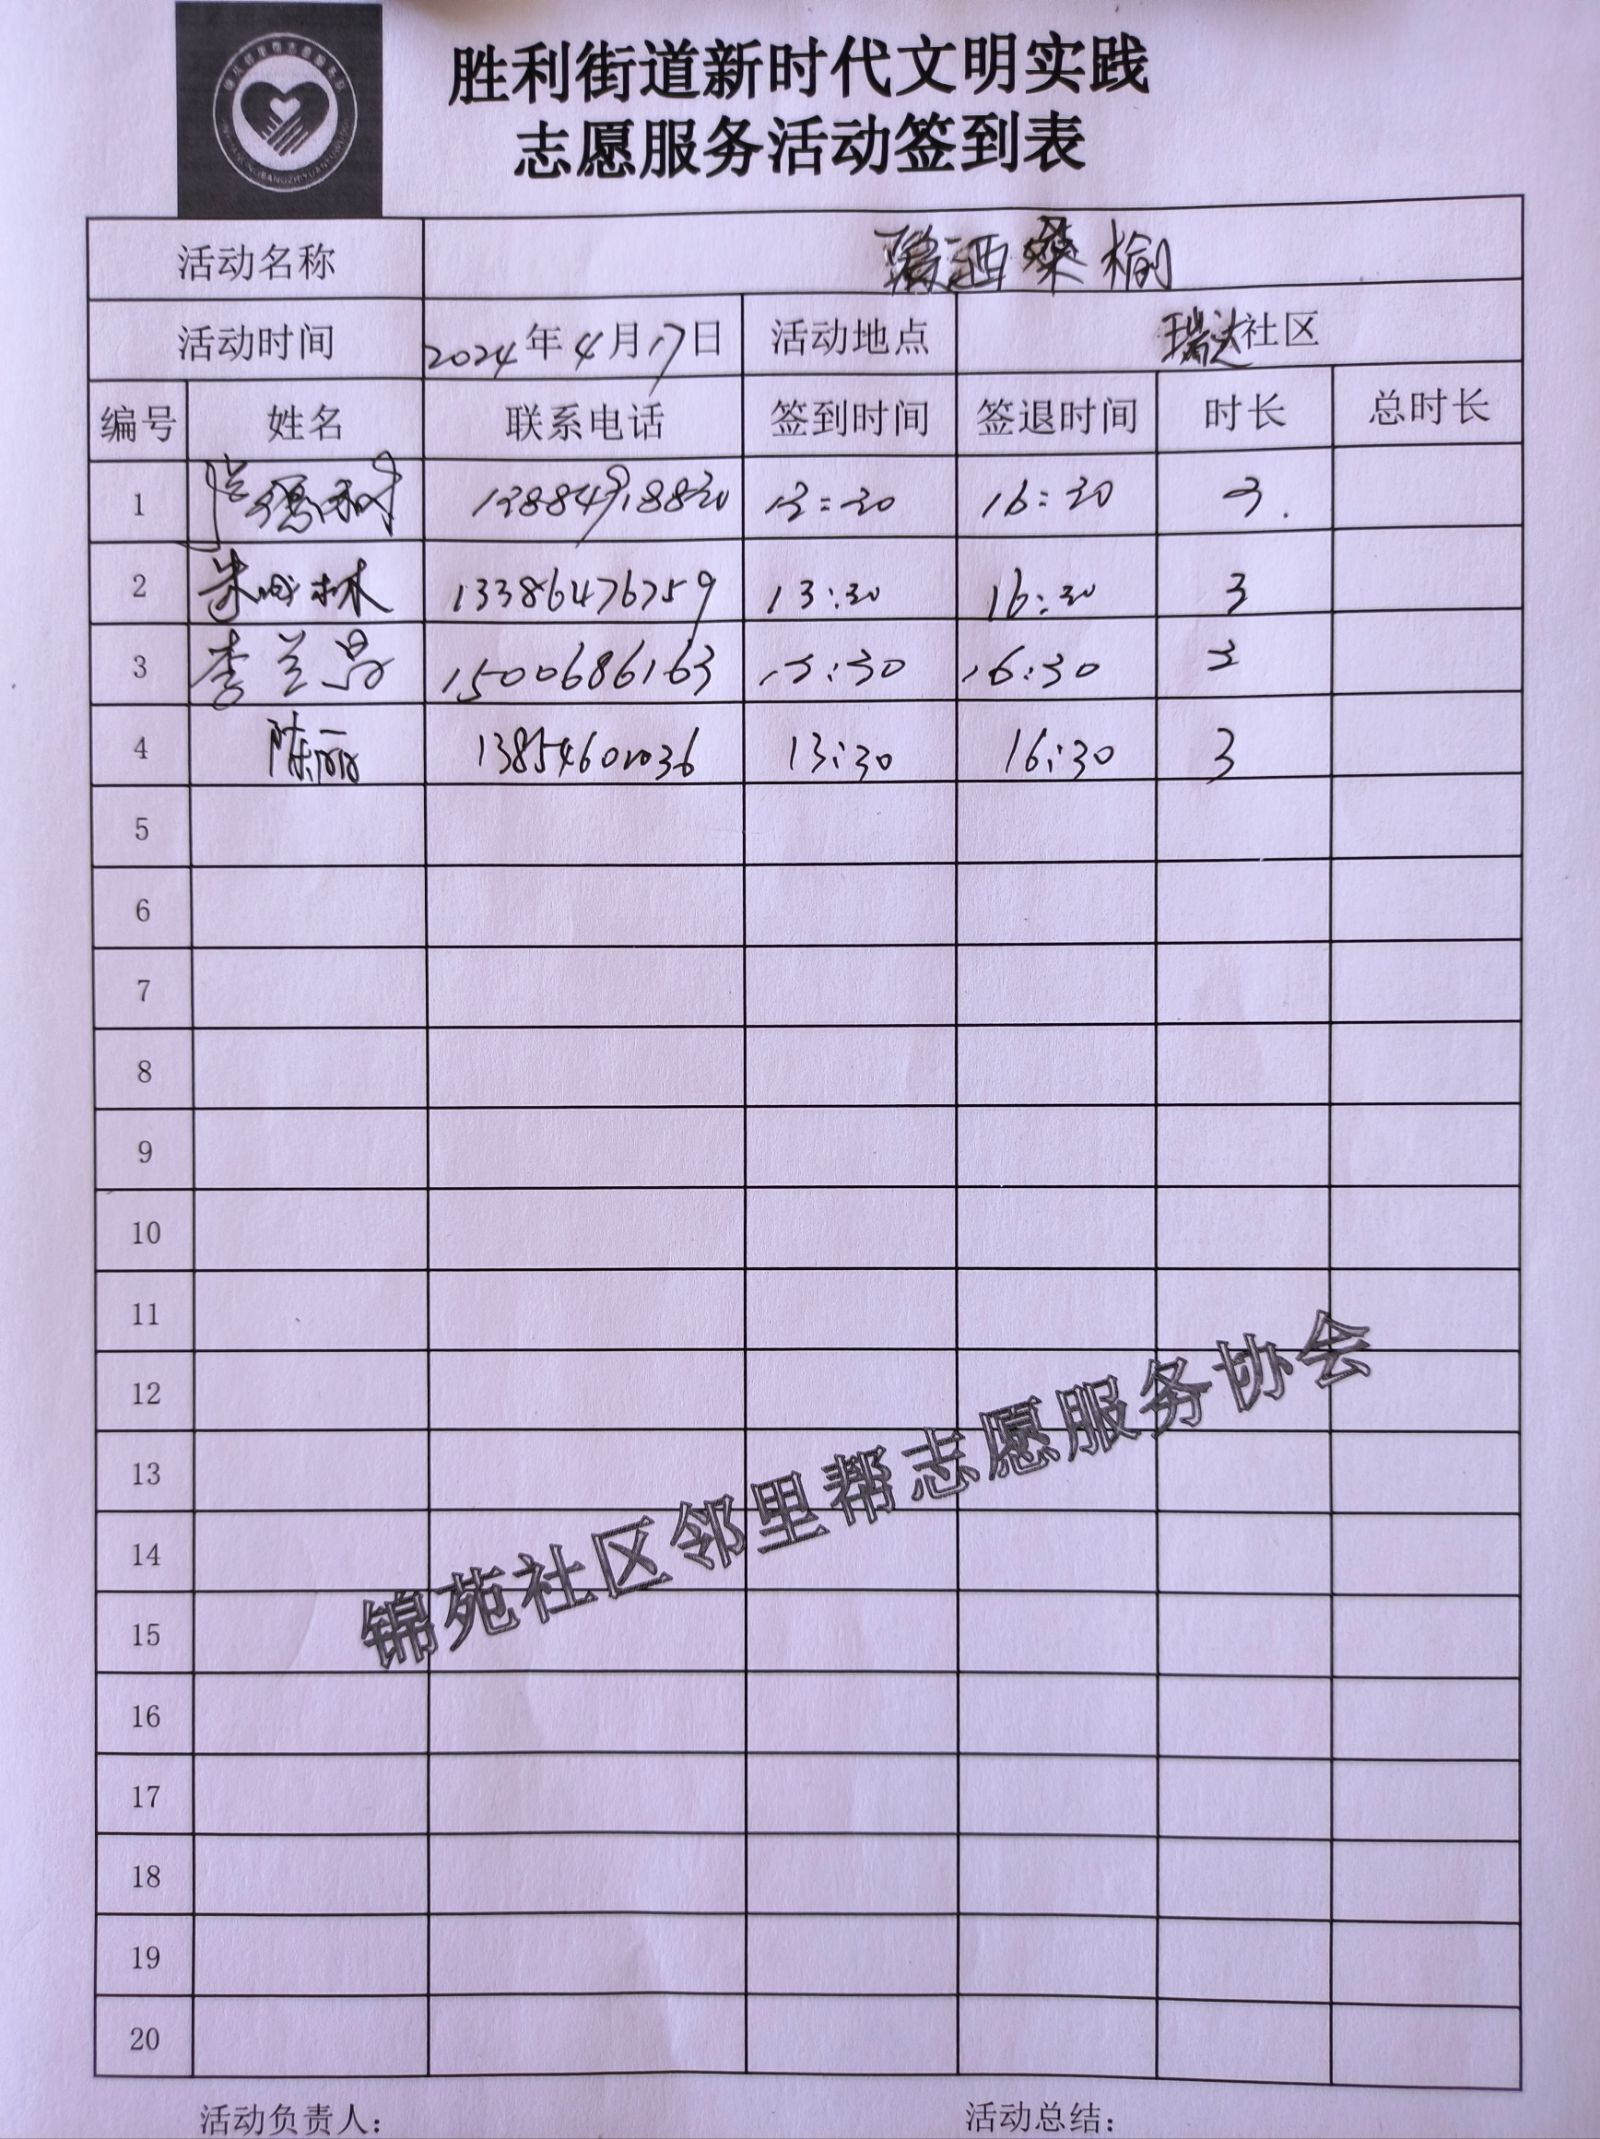 胜利街道新时代文明实践
志愿服务活动签到表
活动名称 洒桑榆
活动时间 2024年4月17日 活动地点 瑞达社区
编号 姓名 联系电话 签到时间 签退时间 时长 总时长
1 13884918830 13:30 16:30 3.
2 朱成林 13386476759 13:30 16:30 3
3 李兰昌 15006686163 13:30 16:30 3
4 陈丽 13:30 16:30 3
5
6
7
8
9
10
11
12
13
14
15
16
17
18
19
20
锦苑社区邻里帮志愿服务协会
活动负责人： 活动总结：